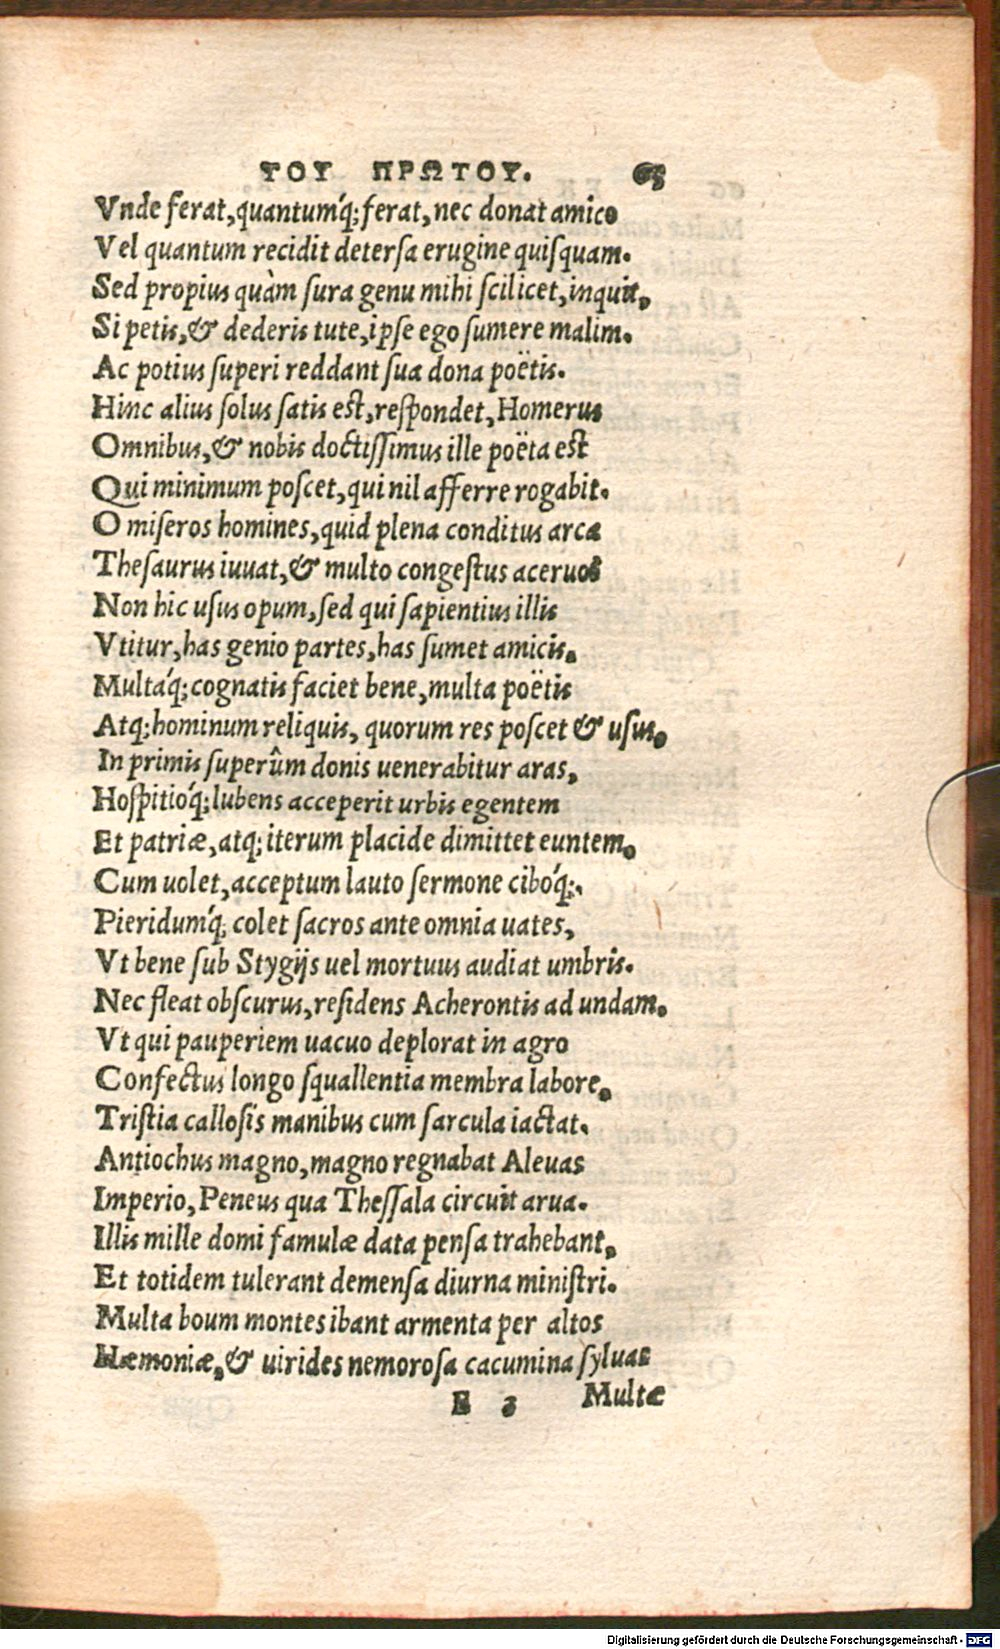 ΤΟΥ ΠΡΩΤΟΥ. 65
Vnde ferat, quantumq́; ferat, nec donat amico
Vel quantum recidit detersa erugine quisquam.
Sed propius quàm sura genu mihi scilicet, inquit,
Si petis, & dederis tute, ipse ego sumere malim.
Ac potius superi reddant sua dona poëtis.
Hinc alius solus satis est, respondet, Homerus
Omnibus, & nobis doctissimus ille poëta est
Qui minimum poscet, qui nil afferre rogabit.
O miseros homines, quid plena conditus arca
Thesaurus iuuat, & multo congestus aceruo?
Non hic usus opum, sed qui sapientius illis
Vtitur, has genio partes, has sumet amicis.
Multaq́; cognatis faciet bene, multa poëtis
Atq; hominum reliquis, quorum res poscet & usus.
In primis superûm donis uenerabitur aras,
Hospitioq́; lubens acceperit urbis egentem
Et patriæ, atq; iterum placide dimittet euntem.
Cum uolet, acceptum lauto sermone ciboq́;.
Pieridumq́; colet sacros ante omnia uates,
Vt bene sub Stygijs uel mortuus audiat umbris.
Nec fleat obscurus, residens Acherontis ad undam.
Vt qui pauperiem uacuo deplorat in agro
Confectus longo squallentia membra labore,
Tristia callosis manibus cum sarcula iactat.
Antiochus magno, magno regnabat Aleuas
Imperio, Peneus qua Thessala circuit arua.
Illis mille domi famulæ data pensa trahebant,
Et totidem tulerant demensa diurna ministri.
Multa boum montes ibant armenta per altos
Hæmoniæ, & uirides nemorosa cacumina syluas
E 3 Multæ
Digitalisierung gefördert durch die Deutsche Forschungsgemeinschaft - DFG